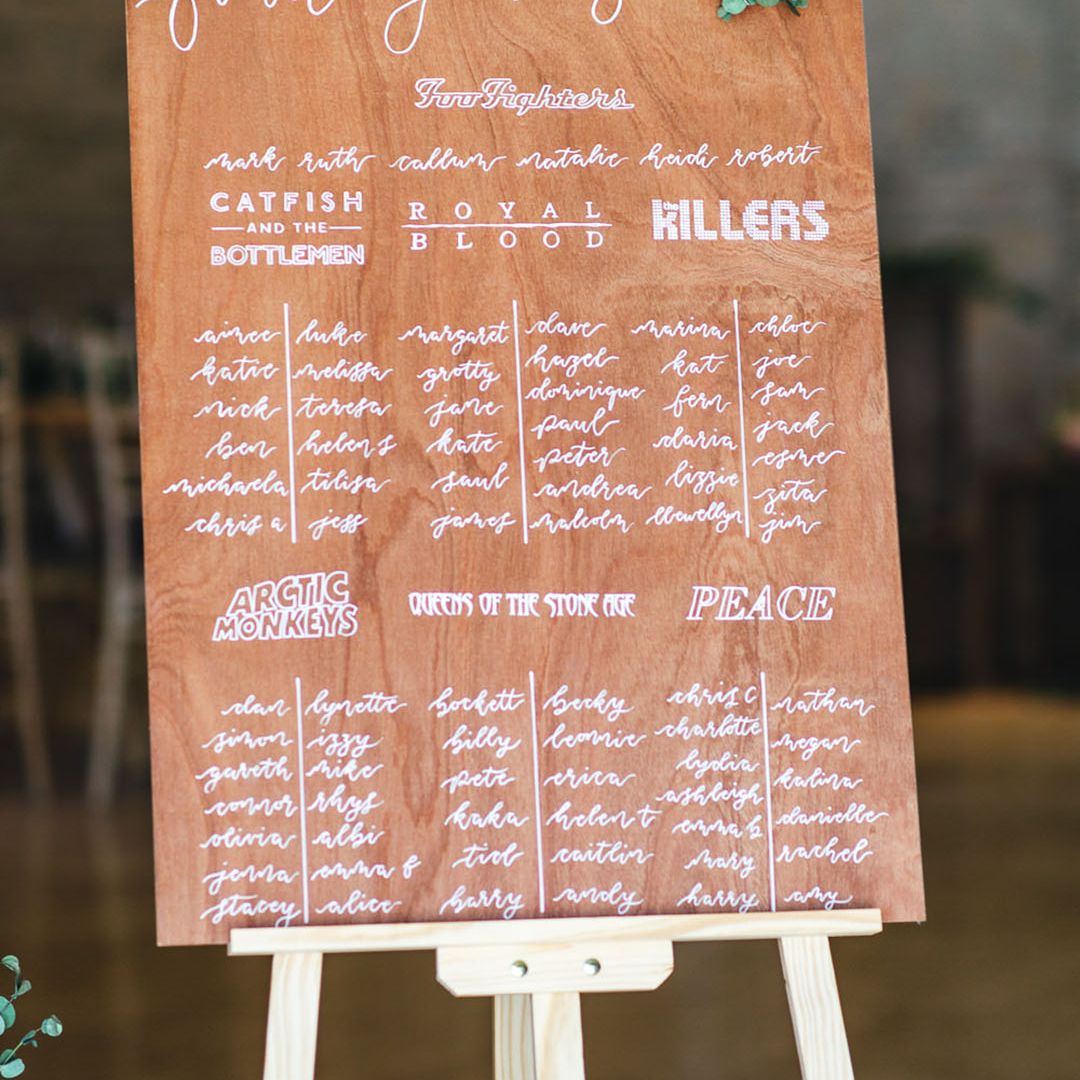 Foo Fighters
mark ruth callum natalie heidi robert
CATFISH
AND THE
BOTTLEMEN
ROYAL
BLOOD
the
KILLERS
aimee luke
katie melissa
nick teresa
ben helen s
michaela tilisa
chris a jess
margaret dave
grotty hazel
jane dominique
kate paul
saul peter
james andrea
malcolm
marina chloe
kat joe
fern sam
daria jack
lizzie esme
llewellyn zita
jim
ARCTIC
MONKEYS
QUEENS OF THE STONE AGE
PEACE
dan lynette
simon izzy
gareth mike
connor rhys
olivia albi
jenna emma f
stacey alice
bockett becky
billy leonnie
pete erica
kaka helen t
tid caitlin
barry andy
chris c nathan
charlotte megan
lydia kalina
ashleigh danielle
emma b rachel
mary amy
harry